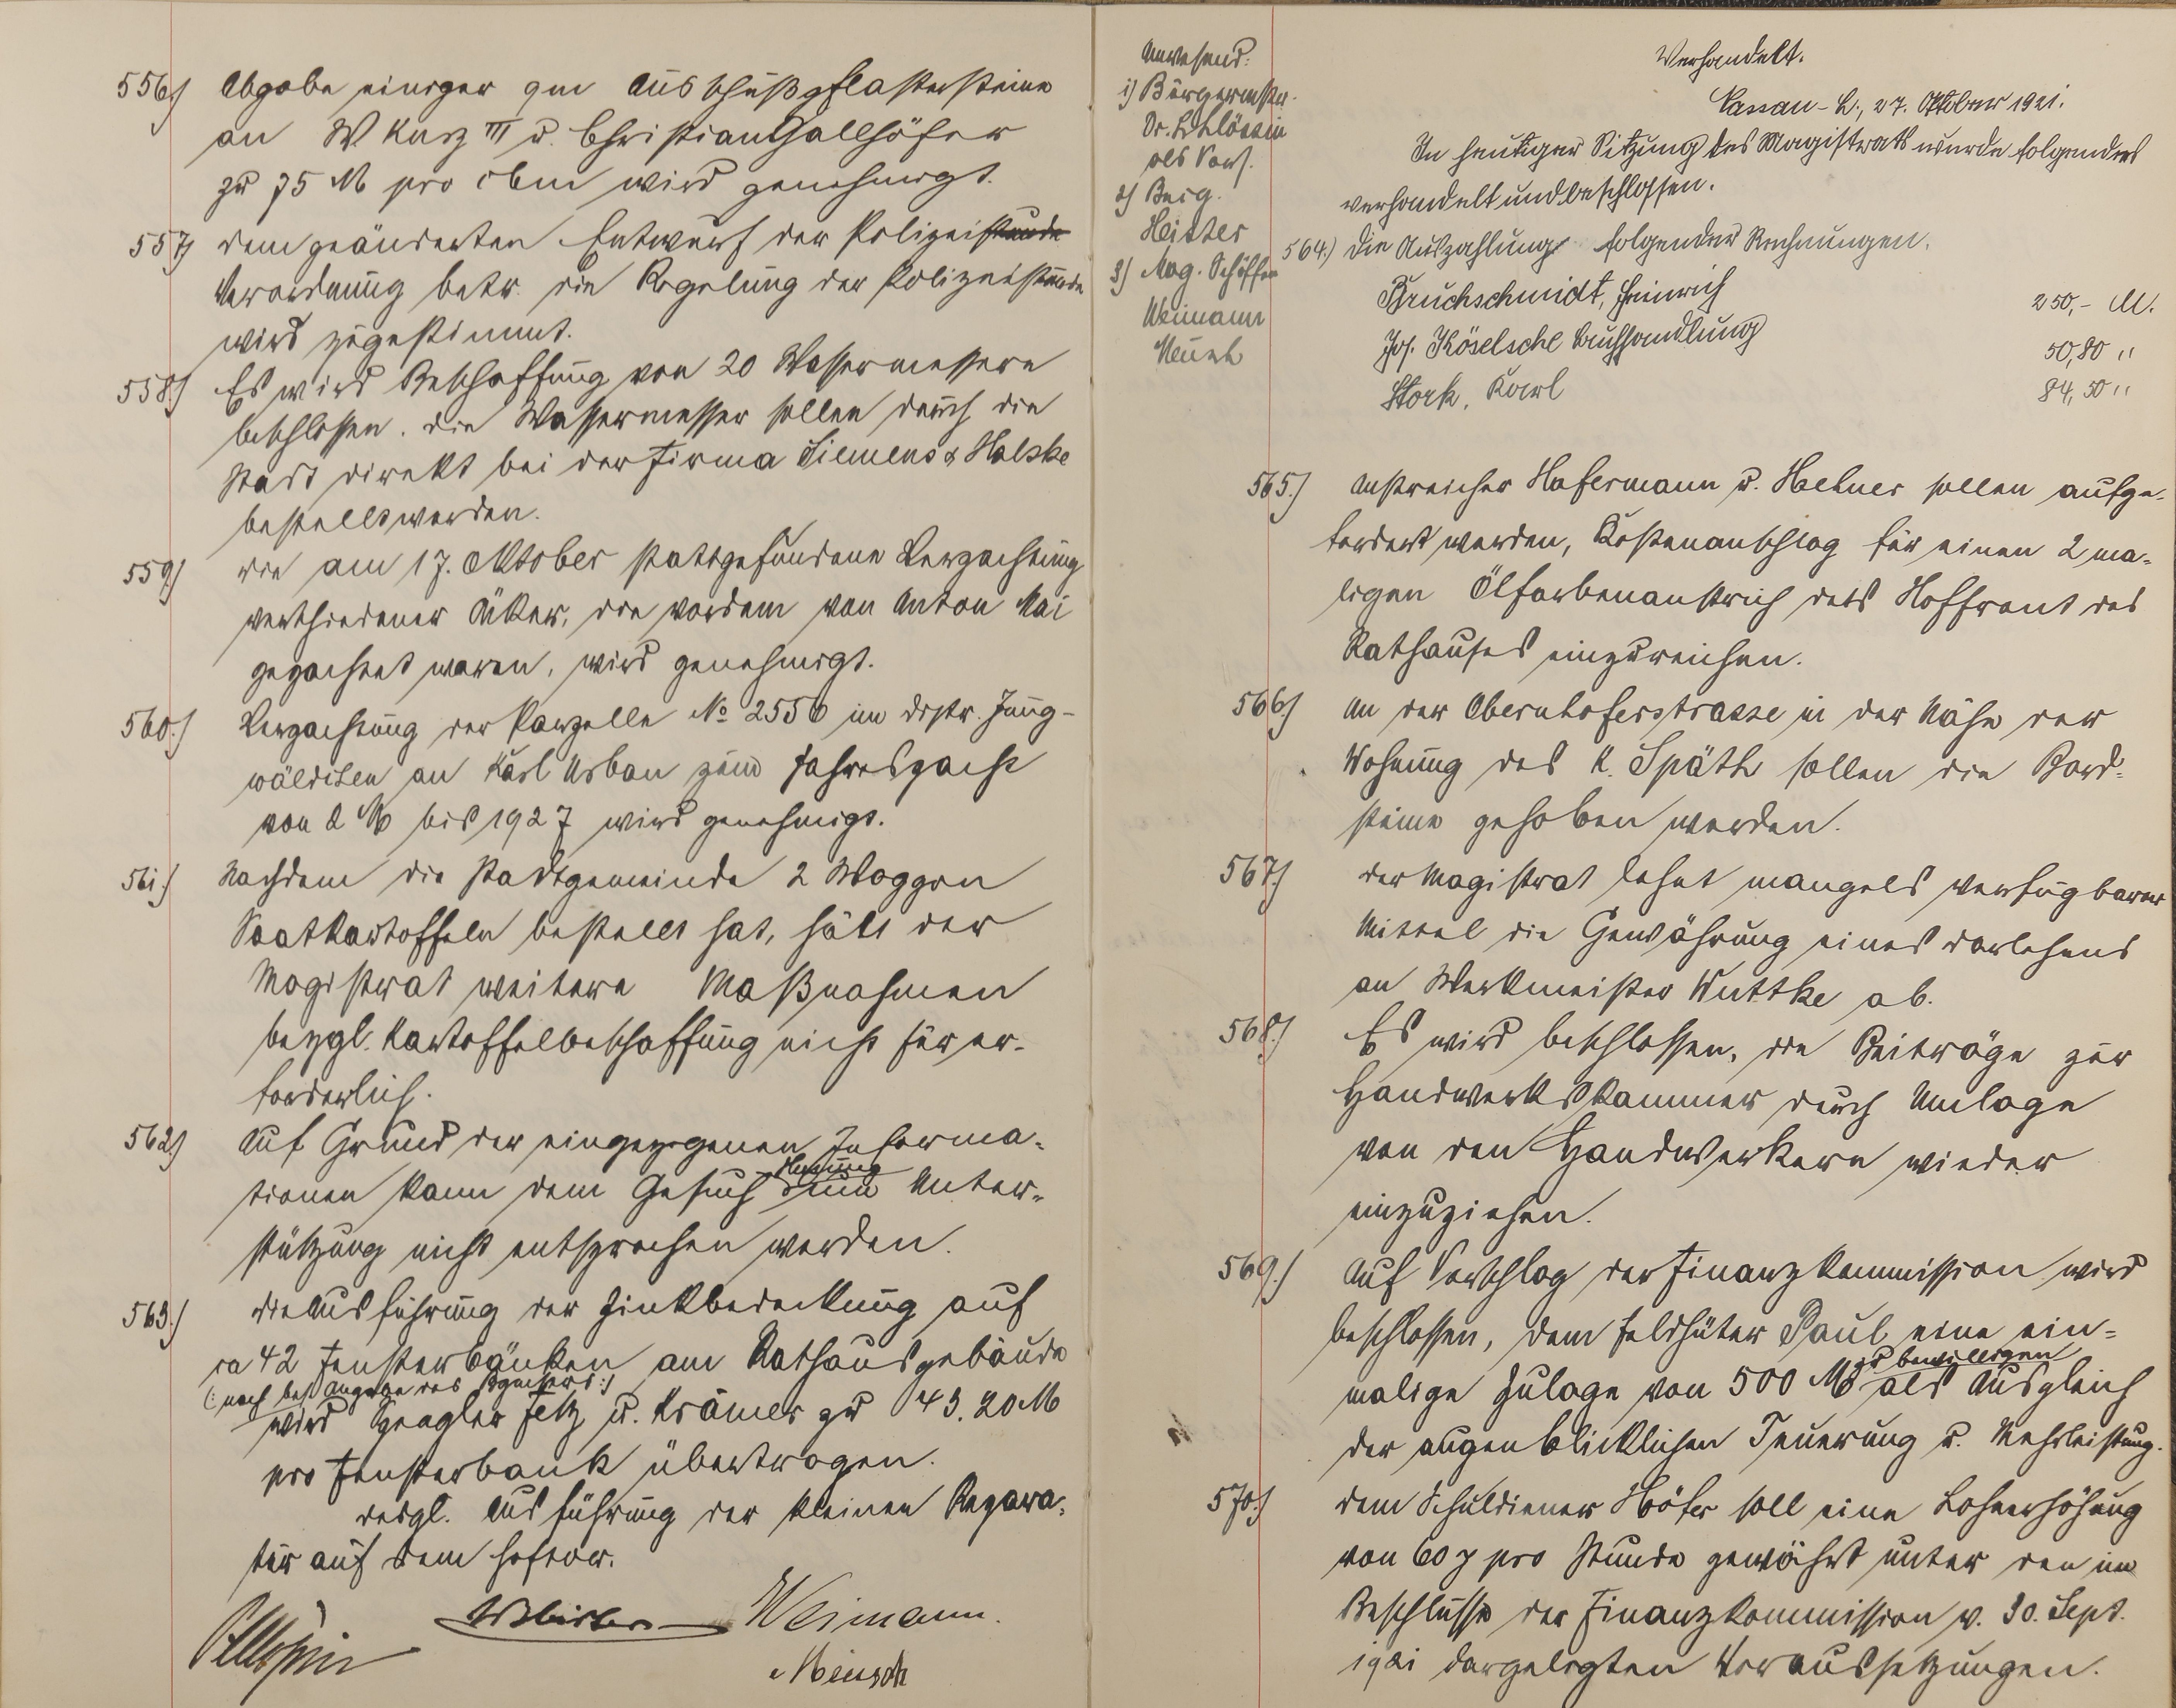 556.) Abgabe einiger qm Ausschußpflastersteine
an W Kurz III u. Christian Gallhöfer
zu 75 M pro cbm wird genehmigt.
557) dem geänderten Entwurf der Polizeistunde
Verordnung betr. die Regelung der Polizeistunde
wird zugestimmt.
558.) Es wird Beschaffung von 20 Wassermessern
beschlossen. die Wassermesser sollen durch die
Stadt direkt bei der Firma Siemens & Halske
bestellt werden.
559) die am 17. Oktober stattgefundene Verpachtung
verschiedener Äcker, die vordem von Anton Mai
gepachtet waren, wird genehmigt.
560.) Verpachtung der Parzelle No 2556 im Distr. Jung-
wäldchen an Karl Urban zum Jahrespacht
von 2 M bis 1927 wird genehmigt.
561.) Nachdem die Stadtgemeinde 2 Waggon
Saatkartoffeln bestellt hat, hält der
Magistrat weitere Maßnahmen
bezgl. Kartoffelbeschaffung nicht für er-
forderlich.
562.) Auf Grund der eingezogenen Informa-
tionen kann dem Gesuch um Unter-
stützung nicht entsprochen werden.
563.) die Ausführung der Zinkbedeckung auf
ca 42 Fensterbänken am Rathausgebäude
(: nach bes. Angabe des :)
wird Spengler Fetz u. Krämer zu 43.20 M
pro Fensterbank übertragen.
desgl. Ausführung der kleinen Repara-
tur auf dem Hoftor.
Weimann.
Meusch
Anwesend:
1) Bürgermstr.
Dr. Schlössin
als Vors.
2) Beig.
Heister
3) Mag. Schöffen
Weimann
Meusch
Verhandelt.
Nassau-L., 27. Oktober 1921.
In heutiger Sitzung des Magistrats wurde folgendes
verhandelt und beschlossen.
564.) die Auszahlung folgender Rechnungen.
Bruchschmidt, Heinrich 250,- M.
Jos. Köselsche Buchhandlung 50,80 "
Stork, Karl 84,50 "
565.) Anstreicher Hafermann u. Hehner sollen aufge-
fordert werden, Kostenanschlag für einen 2 ma-
ligen Ölfarbenanstrich des Hoffront des
Rathauses einzureichen.
566.) An der Obernhoferstrasse in der Nähe der
Wohnung des K. Späth sollen die Bord-
steine gehoben werden.
567.) der Magistrat lehnt mangels verfügbarer
Mittel die Gewährung eines Darlehens
an Werkmeister Wuttke ab.
568.) Es wird beschlossen, die Beiträge zur
Handwerkskammer durch Umlage
von den Handwerkern wieder
einzuziehen.
569.) Auf Vorschlag der Finanzkommission wird
beschlossen, dem Feldhüter Paul eine ein-
zu bewilligen
malige Zulage von 500 M als Ausgleich
der augenblicklichen Teuerung u. Mehrleistung.
570.) dem Schuldiener Höfer soll eine Lohnerhöhung
von 60 ₰ pro Stunde gewährt unter den im
Beschlusse der Finanzkommission v. 30. Sept.
1921 dargelegten Voraussetzungen.